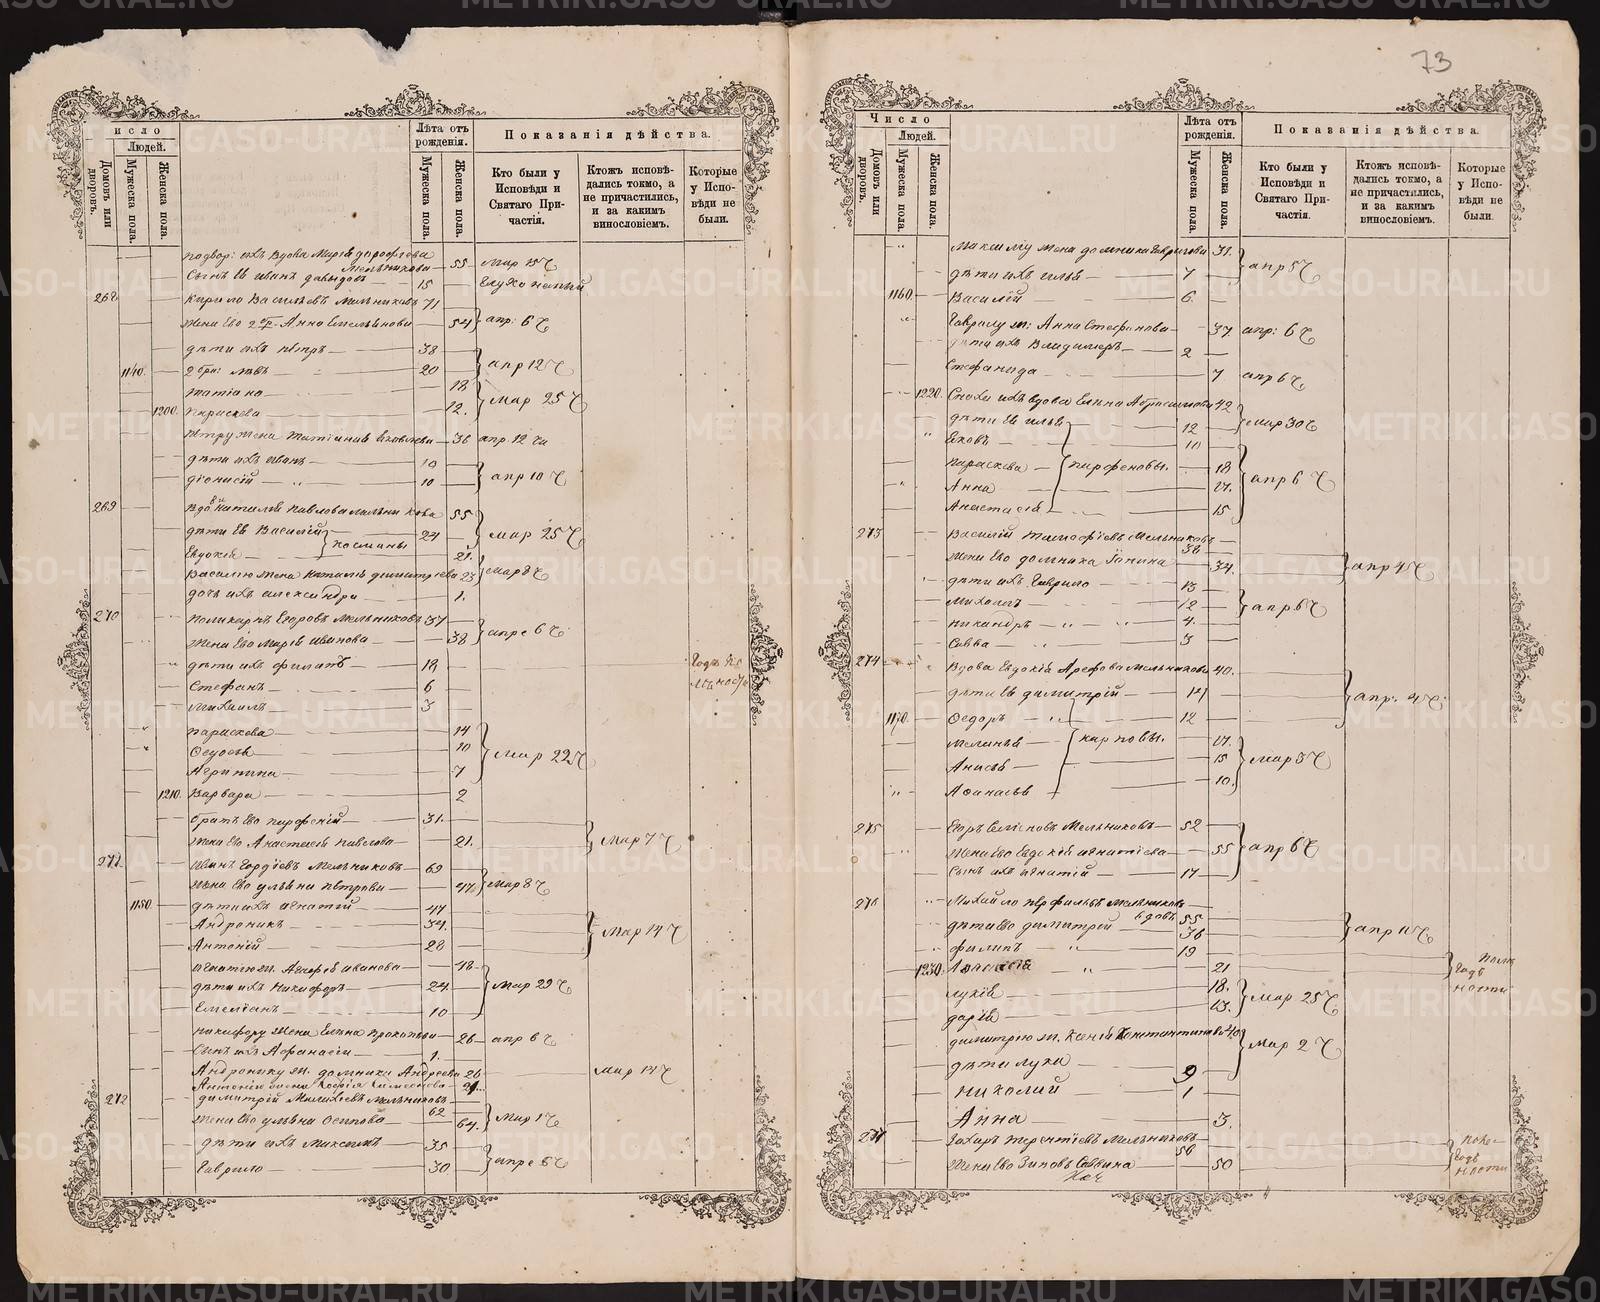 73
исло
Людей.
Домовъ или дворовъ.
Мужеска пола.
Женска пола.
Лѣта отъ рожденія.
Мужеска пола.
Женска пола.
Показанія дѣйства.
Кто были у Исповѣди и Святаго Причастія.
Ктожъ исповѣдались токмо, а не причастились, и за какимъ винословіемъ.
Которые у Исповѣди не были.
Вдова Марія Дорофеева
Мельникова 55 мар 15
Сынъ Ея Иванъ Давыдовъ 15
268 Кирило Васильевъ Мельниковъ 71
Жена Его 2 бр. Анна Емельянова 54 апр: 6
дѣти ихъ Петръ 38
1140. 20 апр 12
Татіана 18
1200. Параскева 12. мар 25
Петру жена Татіана Яковлева 36 апр 12
дѣти ихъ Иванъ 19
Діонисій 10 апр 10
269 Наталья Павлова Мельникова 55
дѣти Ея Василій 24 Космины мар 25
Евдокія 21.
Василію Жена Наталья Димитріева 23 мар 8
дочь ихъ Александра 1.
270 Поликарпъ Егоровъ Мельниковъ 37
Жена Его Марія Иванова 38 апре 6
дѣти ихъ Филипъ 18
Стефанъ 6
Михаилъ 3
Параскева 14
Федосья 10
Агрипина 7 Мар 22
1210. Варвара 2
братъ Его Парфеній 31.
Жена Его Анастасія Павлова 21. Мар 7
271 Иванъ Гордіевъ Мельниковъ 69
Жена Его Ульяна Петрова 47. мар 8
1150. дѣти ихъ Игнатій 47
Андроникъ 34. Мар 14
Антоній 28
Игнатію ж. Агафья Иванова 48.
дѣти ихъ Никифоръ 24. Мар 29
Емеліанъ 10
Никифору Жена Елена Прокопьева 26 апр 6
Сынъ ихъ Афанасій 1.
Андронику ж. Домника Андреева 26 мар 14
Антонію жена Софія 21.
272 Димитрій Мельниковъ 62
Жена Его Ульяна Осипова 64. Мар 1
дѣти ихъ Максимъ 35
Гаврило 30 апре 6
Число
Людей.
Домовъ или дворовъ.
Мужеска пола.
Женска пола.
Лѣта отъ рожденія.
Мужеска пола.
Женска пола.
Показанія дѣйства.
Кто были у Исповѣди и Святаго Причастія.
Ктожъ исповѣдались токмо, а не причастились, и за какимъ винословіемъ.
Которые у Исповѣди не были.
Максиму жена Домника Гаврилова 31.
дѣти ихъ Илья 7 апр 5
1160. Василій 6.
Гаврилу ж: Анна Стефанова 37 апр: 6
дѣти ихъ Владимеръ 2
Стефанида 7 апр 6
1220. Сноха ихъ вдова Елена 42
дѣти Ея Илья 12 мар 30
Яковъ 10
Параскева Парфеновы. 18
Анна 17. апр 6
Анастасія 15
273 Василій Тимофіевъ Мельниковъ 38
Жена Его Домника 34. апр 4
дѣти ихъ Гаврило 13
Михаилъ 12 апр 6
Никандръ 4.
Савва 3
274 Вдова Евдокія Арефова Мельникова 40.
дѣти Ея Димитрій 14 апр: 4
1170. Федоръ 12
Меланья Карповы. 17.
Анисья 15 мар 3
Афанасья 10.
275 Егоръ Мельниковъ 52
Жена Его Евдокія Игнатіева 55 апр 6
Сынъ ихъ Игнатій 17
276 Михайло Мельниковъ
вдовъ 55
дѣти Его Димитрій 36 апр 10
Филипъ 19
1230. 21
Лукія 18.
Дарія 13. Мар 25
Димитрію ж. Ксенія Константинова 40
дѣти Лука 9 мар 2
Николай 1
Анна 3.
277 Захаръ Терентіевъ Мельниковъ 56
Жена Его Саввина 50
METRIKI.GASO-URAL.RU